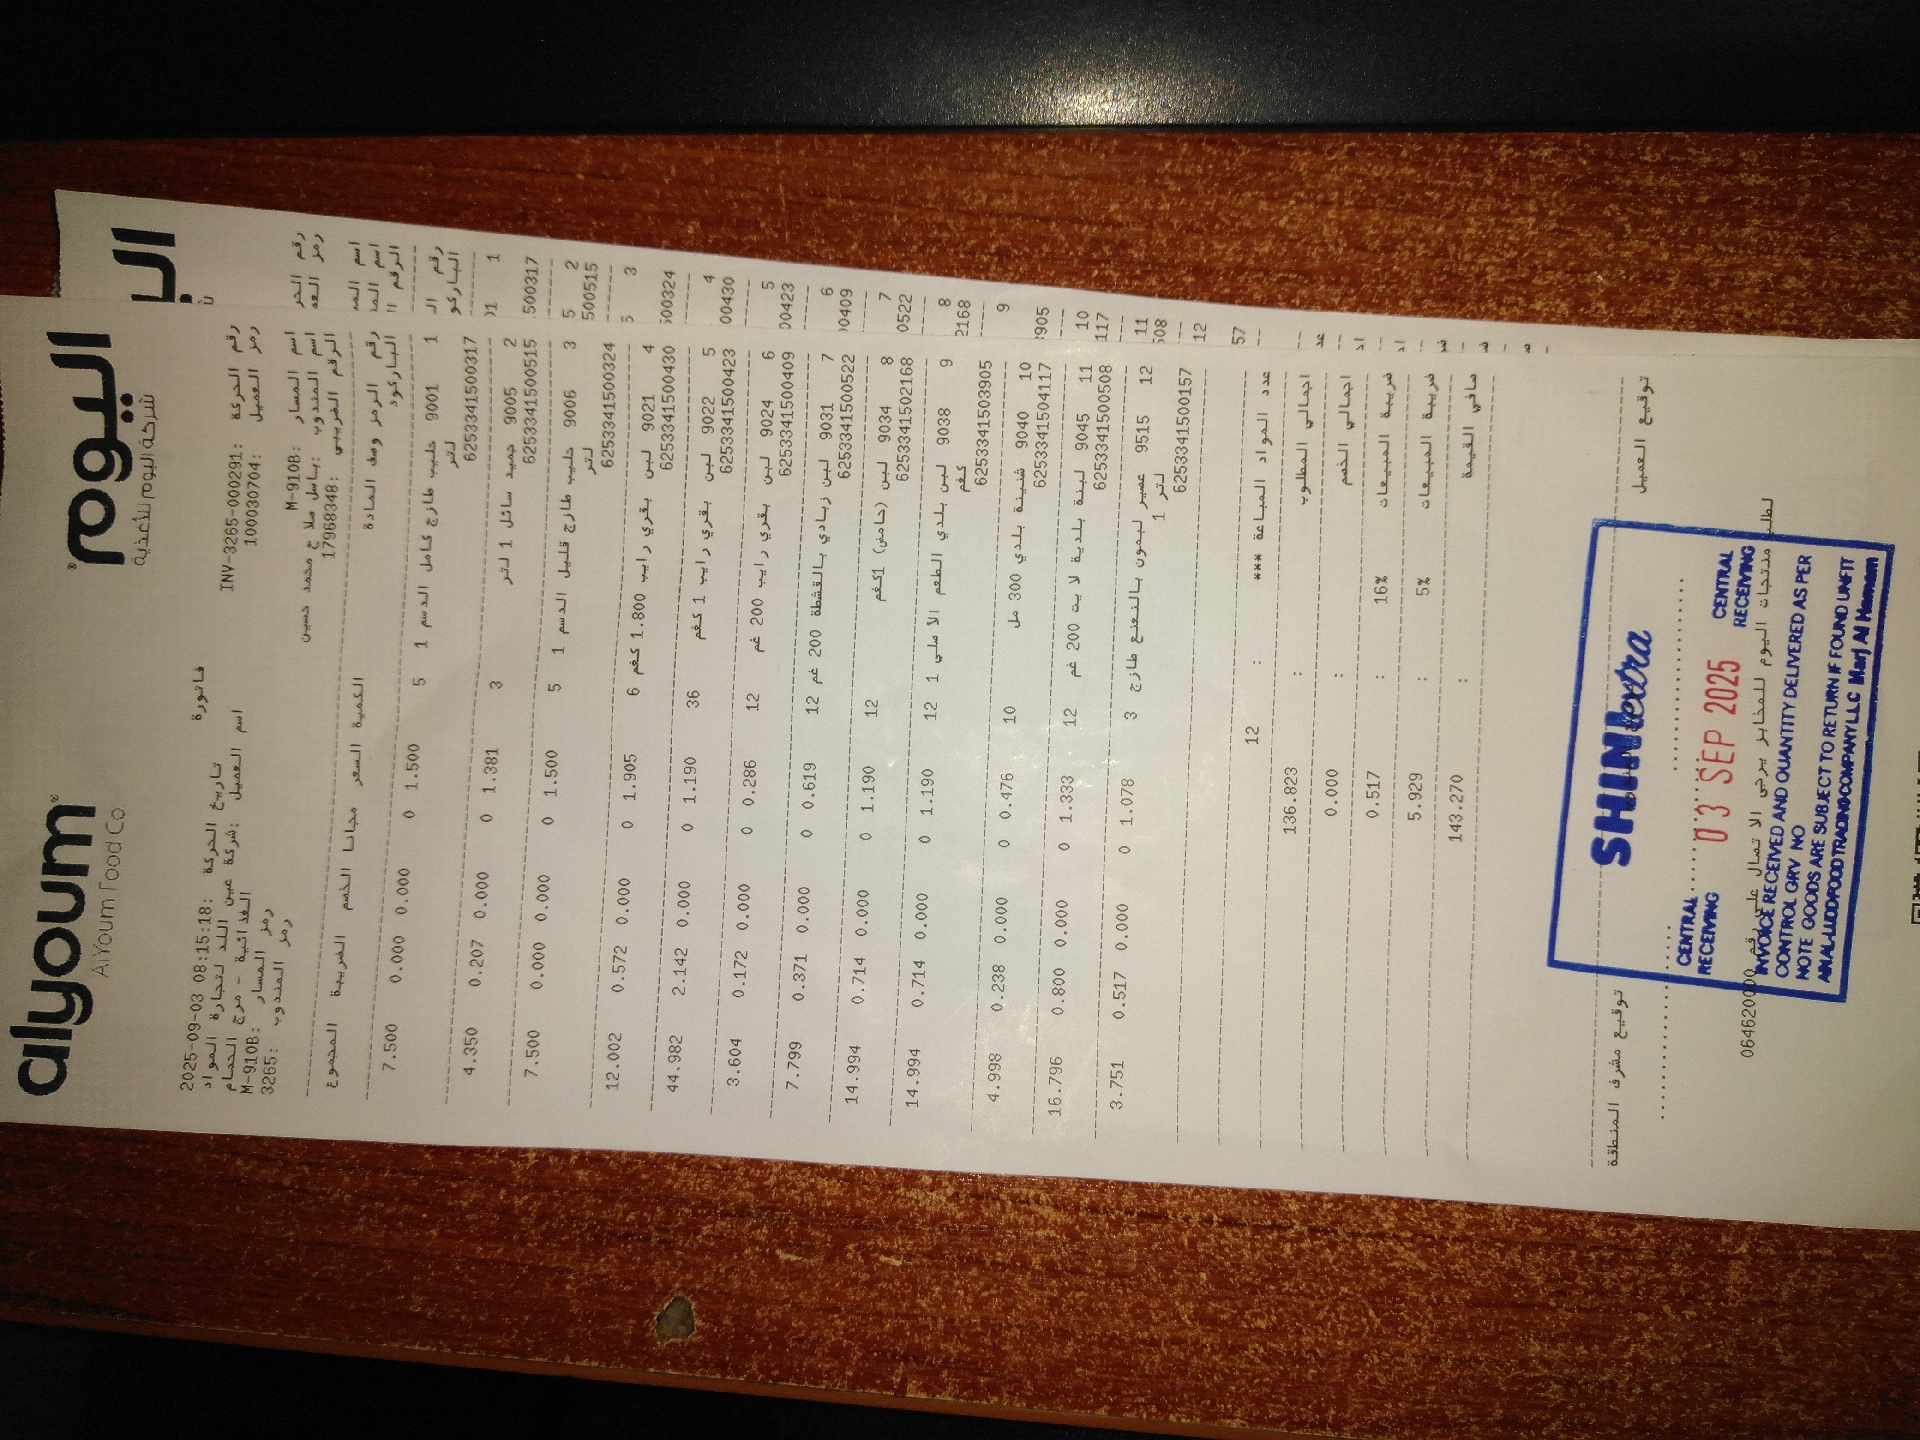 alyoum اليوم
AlYoum Food Co شركة اليوم للأغذية
فاتورة
رقم الحركة :INV-3265-000291 تاريخ الحركة :2025-09-03 08:15:18
رمز العميل :100030704 اسم العميل :شركة عين اللد لتجارة المواد
الغذائية - مرج الحمام
اسم المسار :M-910B رمز المسار :M-910B
اسم المندوب :باسل ملاح محمد حسين رمز المندوب :3265
الرقم الضريبي :17968348
رقم الرمز وصف المادة الكمية السعر مجانا الخصم الضريبة المجموع
الباركود
1 9001 حليب طازج كامل الدسم 1 5 1.500 0 0.000 0.000 7.500
لتر
6253341500317
2 9005 جميد سائل 1 لتر 3 1.381 0 0.000 0.207 4.350
6253341500515
3 9006 حليب طازج قليل الدسم 1 5 1.500 0 0.000 0.000 7.500
لتر
6253341500324
4 9021 لبن بقري رايب 1.800 كغم 6 1.905 0 0.000 0.572 12.002
6253341500430
5 9022 لبن بقري رايب 1 كغم 36 1.190 0 0.000 2.142 44.982
6253341500423
6 9024 لبن بقري رايب 200 غم 12 0.286 0 0.000 0.172 3.604
6253341500409
7 9031 لبن زبادي بالقشطة 200 غم 12 0.619 0 0.000 0.371 7.799
6253341500522
8 9034 لبن (حامض) 1كغم 12 1.190 0 0.000 0.714 14.994
6253341502168
9 9038 لبن بلدي الطعم الاصلي 1 12 1.190 0 0.000 0.714 14.994
كغم
6253341503905
10 9040 شنينة بلدي 300 مل 10 0.476 0 0.000 0.238 4.998
6253341504117
11 9045 لبنة بلدية لايت 200 غم 12 1.333 0 0.000 0.800 16.796
6253341500508
12 9515 عصير ليمون بالنعنع طازج 3 1.078 0 0.000 0.517 3.751
1 لتر
6253341500157
عدد المواد المباعة *** : 12
اجمالي المطلوب : 136.823
اجمالي الخصم : 0.000
ضريبة المبيعات 16% : 0.517
ضريبة المبيعات 5% : 5.929
صافي القيمة : 143.270
توقيع العميل
توقيع مشرف المنطقة
SHINextra
CENTRAL RECEIVING 03 SEP 2025 CENTRAL RECEIVING
INVOICE RECEIVED AND QUANTITY DELIVERED AS PER
CONTROL GRV NO
NOTE GOODS ARE SUBJECT TO RETURN IF FOUND UNFIT
AIN AL-LUDD FOOD TRADING COMPANY L.L.C Marj Al Hamam
لطلب منتجات اليوم للمخابز يرجى الاتصال على رقم
064620000